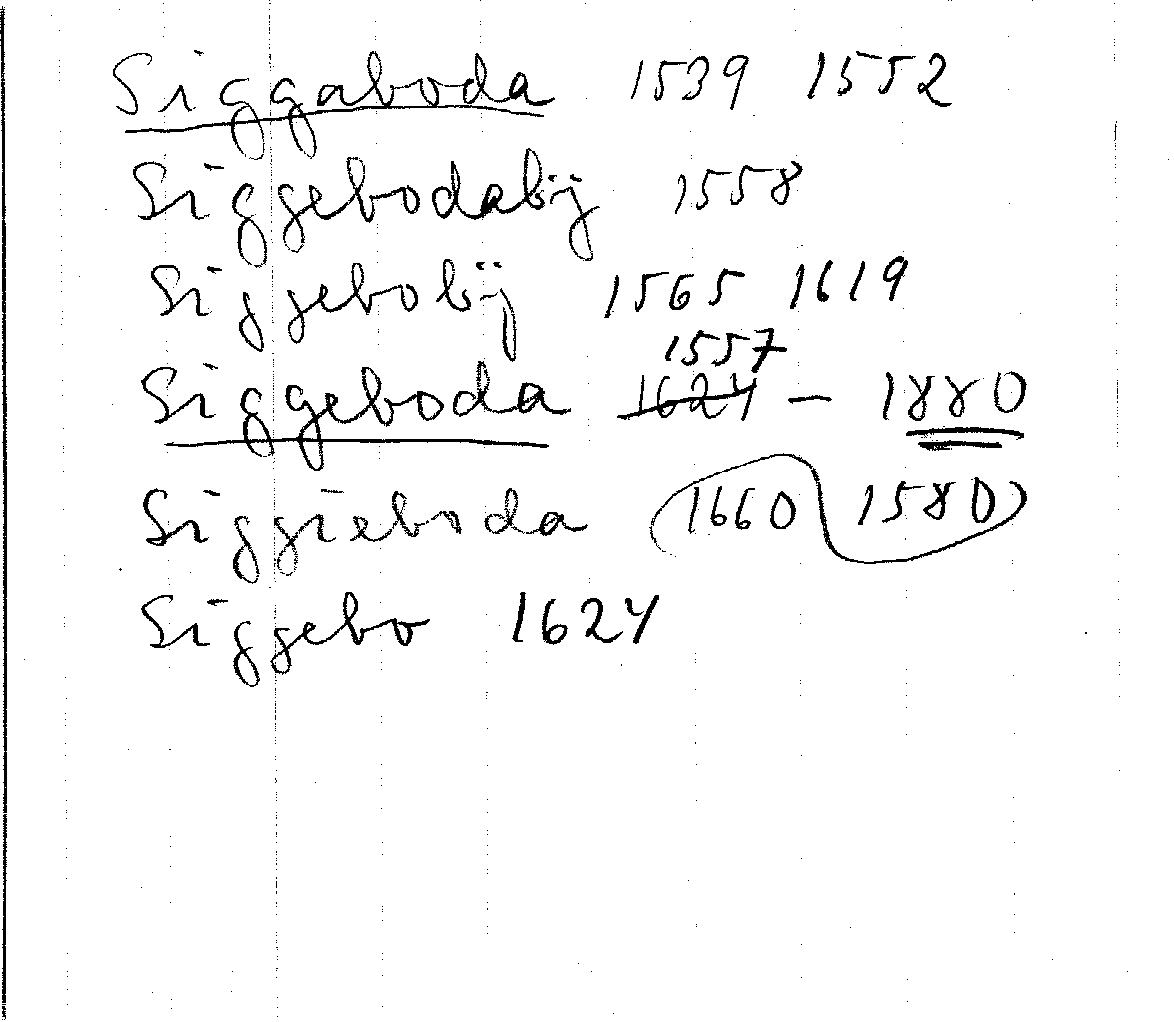 Siggaboda 1539 1552
Siggebodabÿ 1558
Siggebobÿ 1565 1619
1557
Siggeboda 1624 – 1880
Siggieboda (1660 1580)
Siggebo 1624